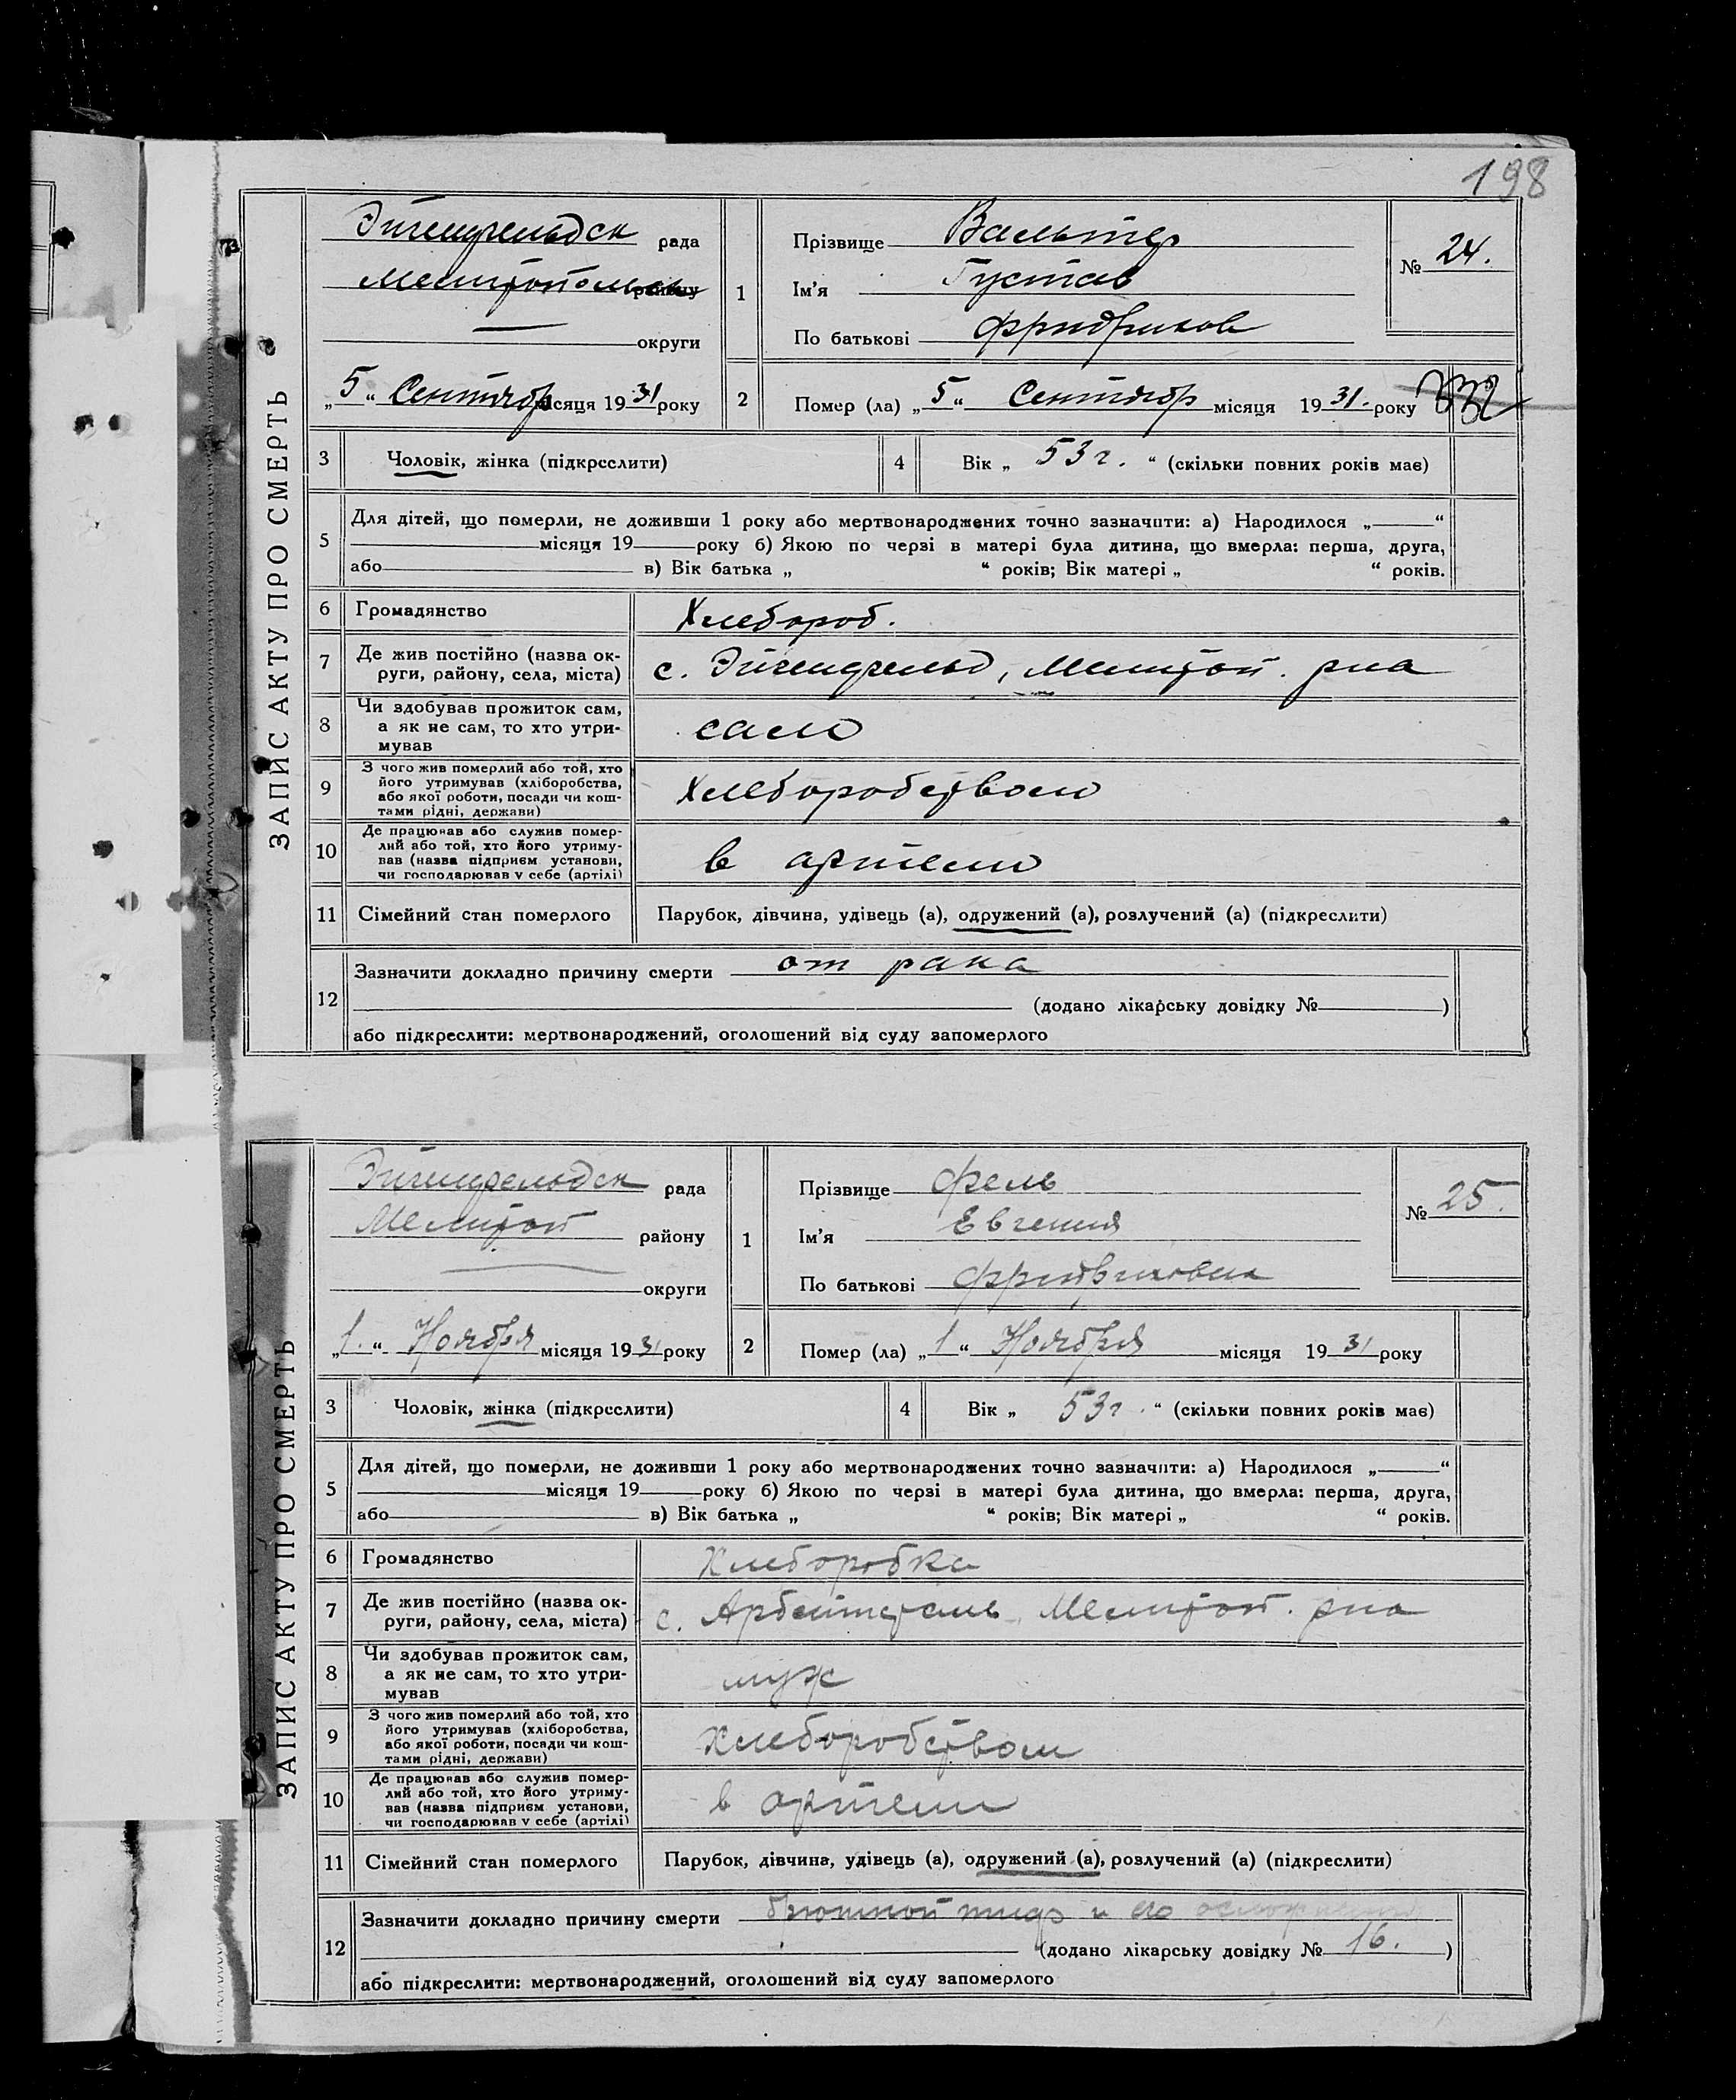 198
ЗАПИС АКТУ ПРО СМЕРТЬ
Эйгенфельдск рада
Мелитопольск району
округи
1
Прізвище Вальтер
Ім'я Густав
По батькові Фридрихов
№ 24.
„5“ Сентябр місяця 1931 року
2
Помер (ла) „5“ Сентябр місяця 1931. року
3 Чоловік, жінка (підкреслити)
4 Вік „ 53 г. “ (скільки повних років має)
5
Для дітей, що померли, не доживши 1 року або мертвонароджених точно зазначити: а) Народилося „ “
місяця 19 року б) Якою по черзі в матері була дитина, що вмерла: перша, друга,
або в) Вік батька „ “ років; Вік матері „ “ років.
6 Громадянство Хлебороб.
7 Де жив постійно (назва ок-
руги, району, села, міста) с. Эйгенфельд, Мелитоп. рна
8 Чи здобував прожиток сам,
а як не сам, то хто утри-
мував
сам
9 З чого жив померлий або той, хто
його утримував (хліборобства,
або якої роботи, посади чи кош-
тами рідні, держави)
Хлеборобством
10 Де працював або служив помер-
лий або той, хто його утриму-
вав (назва підприєм установи,
чи господарював у себе (артілі)
в артели
11 Сімейний стан померлого Парубок, дівчина, удівець (а), одружений (а), розлучений (а) (підкреслити)
12 Зазначити докладно причину смерти от рака
(додано лікарську довідку № )
або підкреслити: мертвонароджений, оголошений від суду запомерлого
ЗАПИС АКТУ ПРО СМЕРТЬ
Эйгенфельдск рада
Мелитоп району
округи
1
Прізвище Фель
Ім'я Евгения
По батькові Фридриховна
№ 25.
„1.“ Ноября місяця 1931 року
2
Помер (ла) „1“ Ноября місяця 1931 року
3 Чоловік, жінка (підкреслити)
4 Вік „ 53 г. “ (скільки повних років має)
5
Для дітей, що померли, не доживши 1 року або мертвонароджених точно зазначити: а) Народилося „ “
місяця 19 року б) Якою по черзі в матері була дитина, що вмерла: перша, друга,
або в) Вік батька „ “ років; Вік матері „ “ років.
6 Громадянство Хлеборобка
7 Де жив постійно (назва ок-
руги, району, села, міста) с. Арбейтсталь, Мелитоп. рна
8 Чи здобував прожиток сам,
а як не сам, то хто утри-
мував
муж
9 З чого жив померлий або той, хто
його утримував (хліборобства,
або якої роботи, посади чи кош-
тами рідні, держави)
Хлеборобством
10 Де працював або служив помер-
лий або той, хто його утриму-
вав (назва підприєм установи,
чи господарював у себе (артілі)
в артели
11 Сімейний стан померлого Парубок, дівчина, удівець (а), одружений (а), розлучений (а) (підкреслити)
12 Зазначити докладно причину смерти брюшной тиф и его осложнения
(додано лікарську довідку № 16. )
або підкреслити: мертвонароджений, оголошений від суду запомерлого